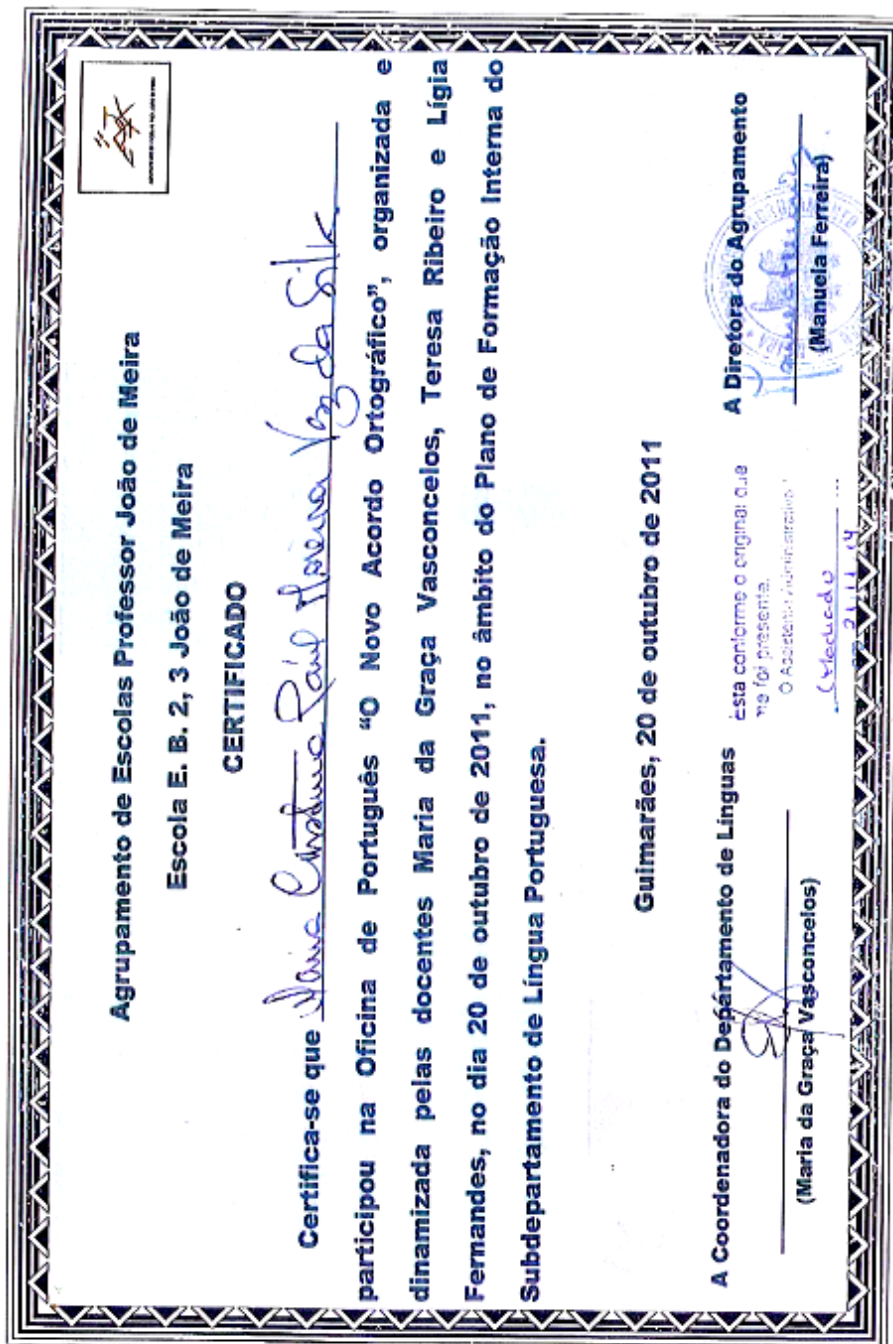 Agrupamento de Escolas Professor João de Meira
Escola E. B. 2, 3 João de Meira
CERTIFICADO
Certifica-se que Maria Cristina Moreira Vaz da Silva
participou na Oficina de Português “O Novo Acordo Ortográfico”, organizada e
dinamizada pelas docentes Maria da Graça Vasconcelos, Teresa Ribeiro e Lígia
Fernandes, no dia 20 de outubro de 2011, no âmbito do Plano de Formação Interna do
Subdepartamento de Língua Portuguesa.
Guimarães, 20 de outubro de 2011
A Coordenadora do Departamento de Línguas
(Maria da Graça Vasconcelos)
Está conforme o original que
me foi presente.
O Assistente Administrativo
21.11.14
A Diretora do Agrupamento
(Manuela Ferreira)